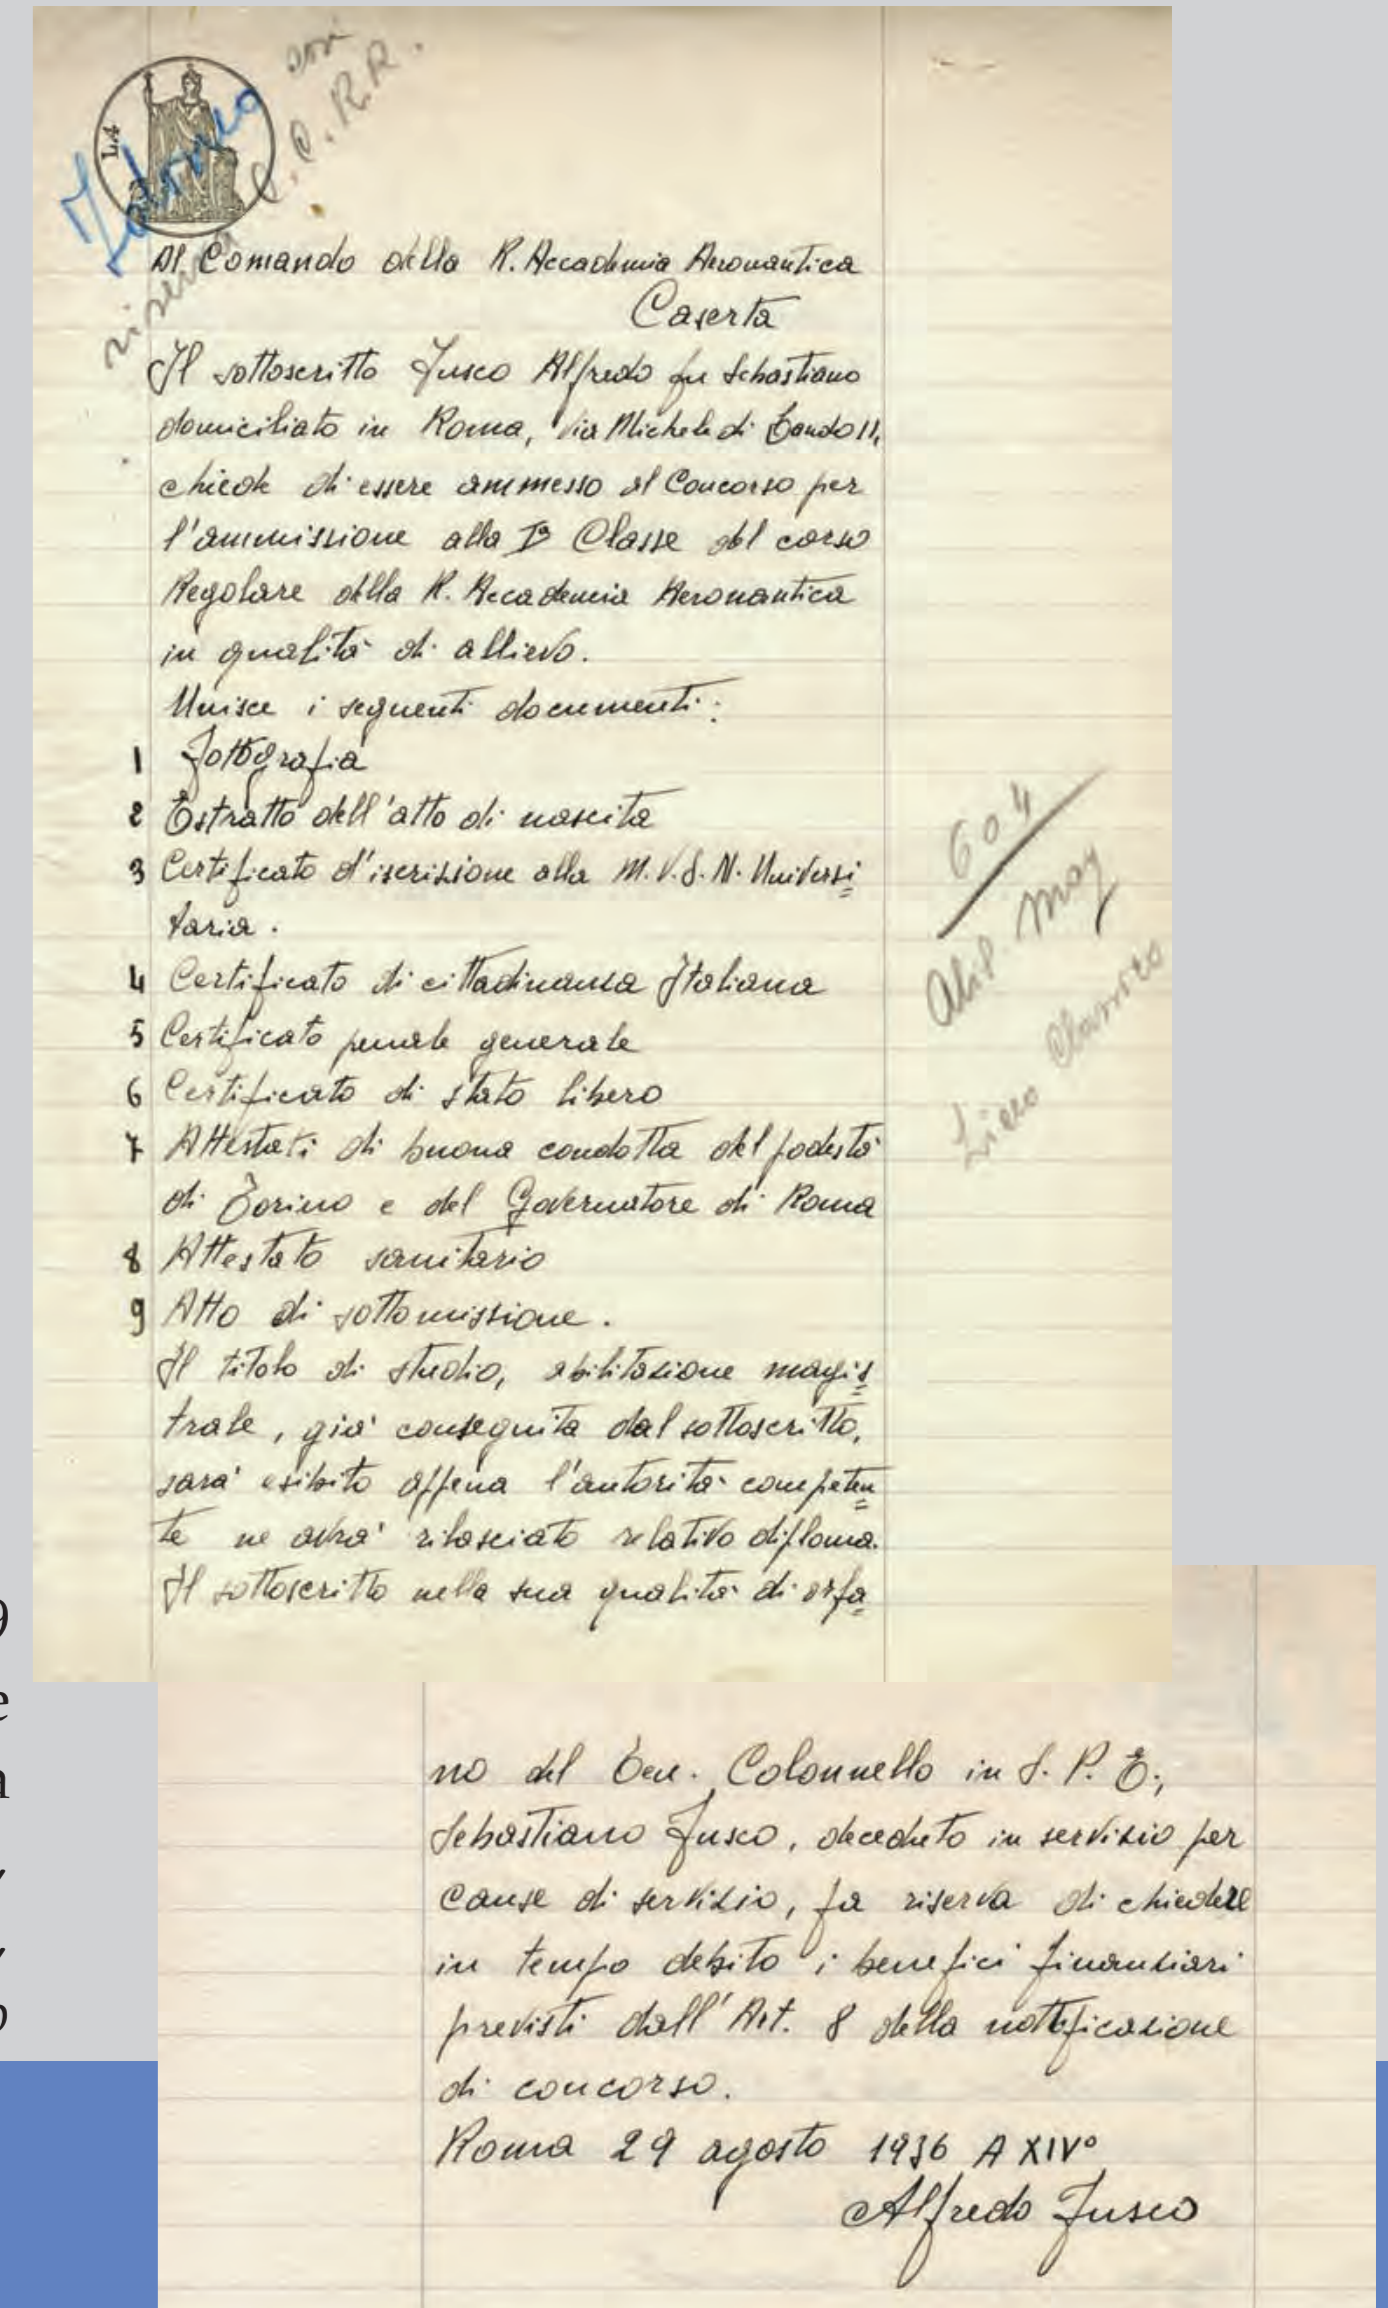 L.4
riserva C.C.R.R.
Al Comando della R. Accademia Aeronautica
Caserta
Il sottoscritto Fusco Alfredo fu Sebastiano
domiciliato in Roma, via Michele di Lando 11,
chiede di essere ammesso al Concorso per
l'ammissione alla Iª Classe del corso
Regolare della R. Accademia Aeronautica
in qualità di allievo.
Unisce i seguenti documenti:
1 Fottografia
2 Estratto dell'atto di nascita
3 Certificato d'iscrizione alla M.V.S.N. Universi=
taria.
4 Certificato di cittadinanza Italiana
5 Certificato penale generale
6 Certificato di stato libero
7 Attestati di buona condotta del podestà
di Torino e del Governatore di Roma
8 Attestato sanitario
9 Atto di sottomissione.
Il titolo di studio, abilitazione magis=
trale, già conseguita dal sottoscritto,
sarà esibito appena l'autorità competen=
te ne avrà rilasciato relativo diploma.
Il sottoscritto nella sua qualità di orfa=
604
Abil. Mag
Liceo Classico
no del Ten. Colonnello in S.P.E.,
Sebastiano Fusco, deceduto in servizio per
cause di servizio, fa riserva di chiedere
in tempo debito i benefici finanziari
previsti dall'Art. 8 della nottificazione
di concorso.
Roma 29 agosto 1936 A XIVº
Alfredo Fusco
9
e
a
,
,
o